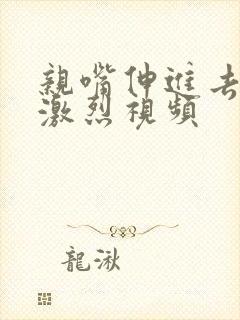 親嘴伸進去
激烈視頻
龍湫